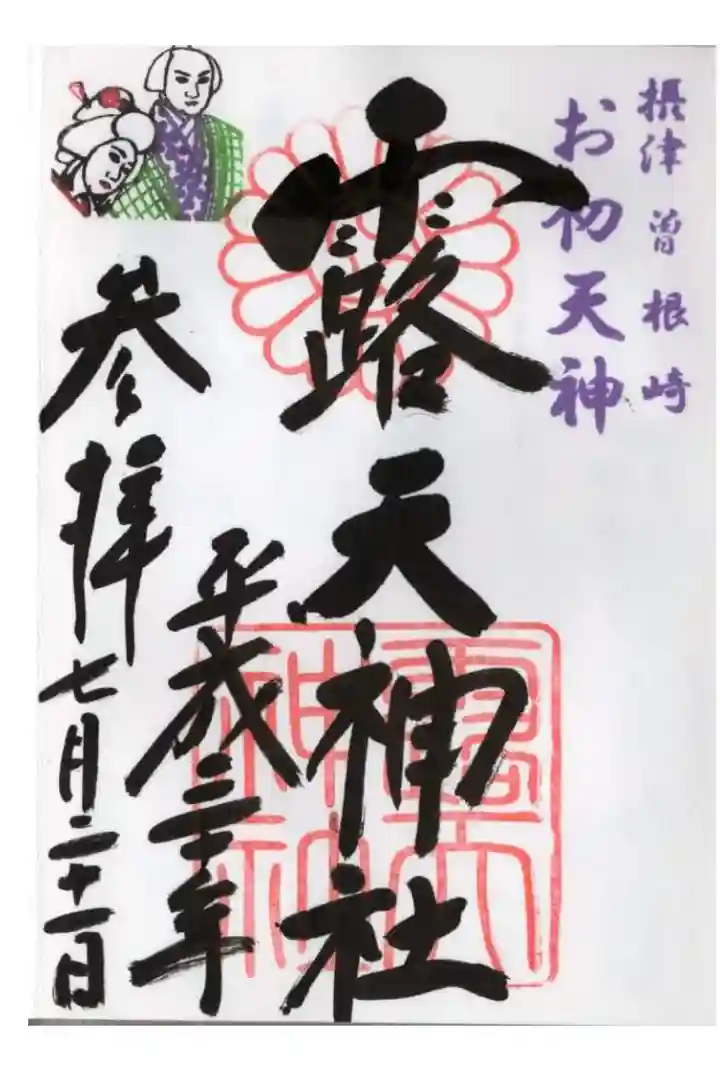 摂津 曽根崎
お初天神
露天神社
平成三十年
参拝七月二十一日
露天
神社